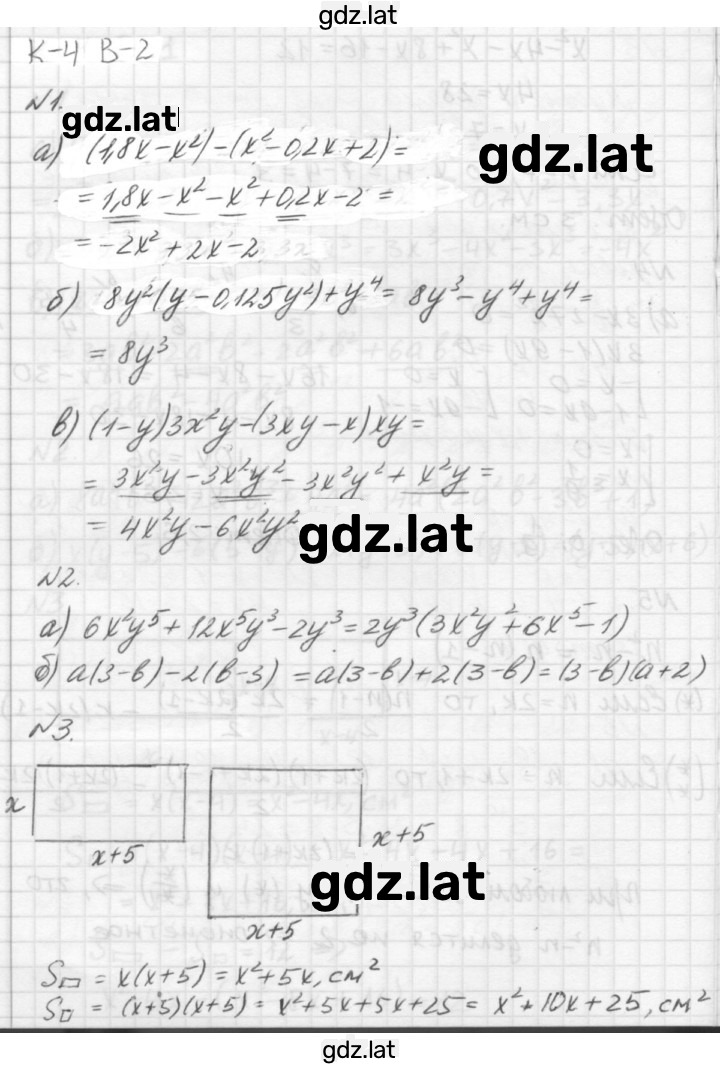 gdz.lat
К-4 В-2
№1.
gdz.lat
а) (1,8x-x²)-(x²-0,2x+2)=
gdz.lat
= 1,8x-x²-x²+0,2x-2 =
= -2x²+2x-2
б) 8y²(y-0,125y²)+y⁴= 8y³-y⁴+y⁴=
= 8y³
в) (1-y)3x²y-(3xy-x)xy=
= 3x²y-3x²y²-3x²y²+x²y=
= 4x²y-6x²y²
gdz.lat
№2.
а) 6x²y⁵+12x⁵y³-2y³=2y³(3x²y²+6x⁵-1)
б) a(3-в)-2(в-3) =a(3-в)+2(3-в)=(3-в)(a+2)
№3.
x
x+5
x+5
gdz.lat
x+5
S▭ = x(x+5) = x²+5x, см²
S□ = (x+5)(x+5) = x²+5x+5x+25 = x²+10x+25, см²
gdz.lat